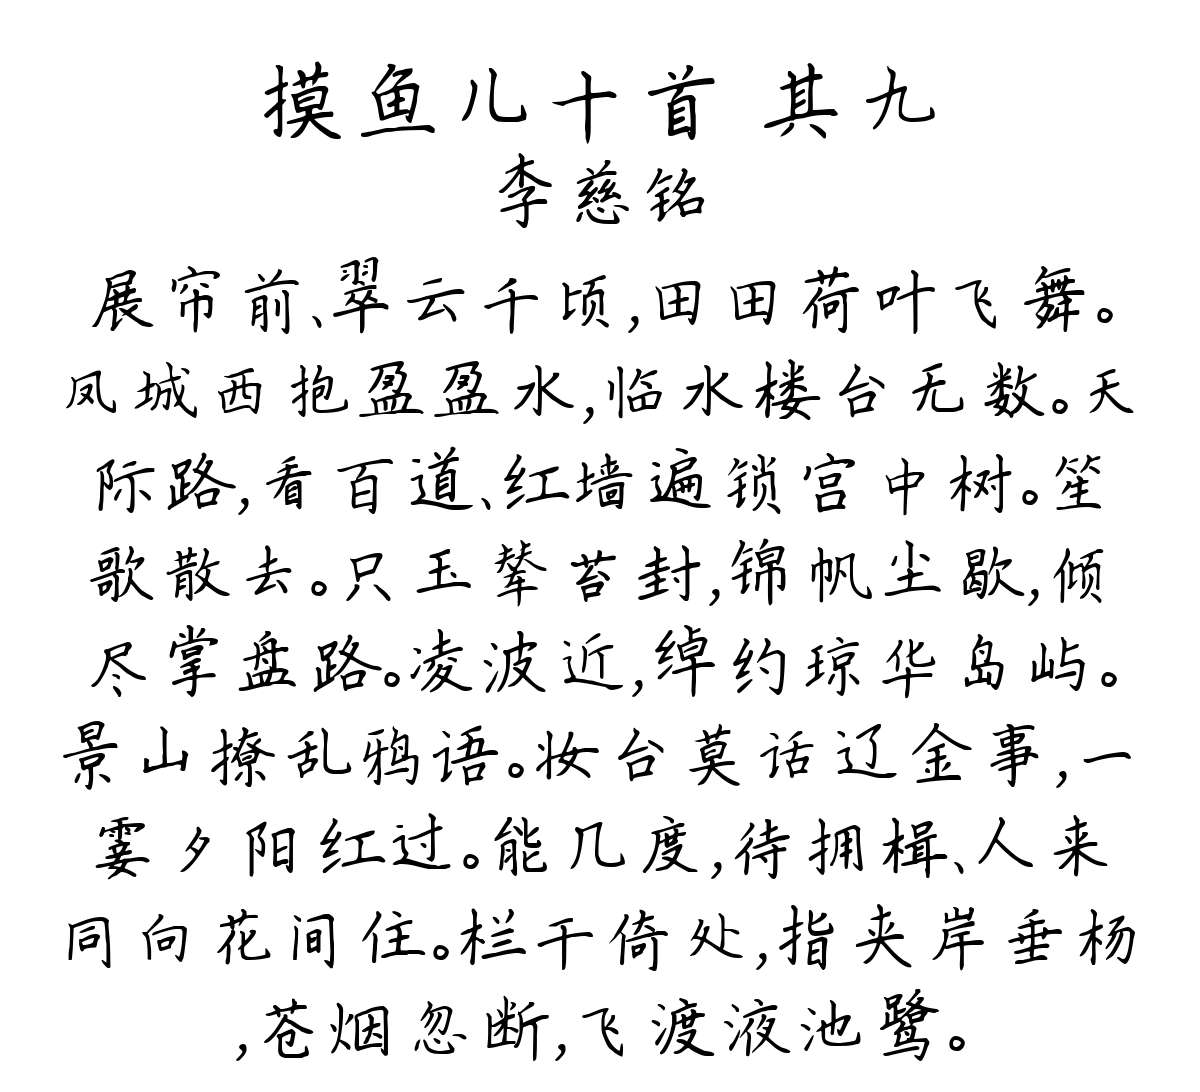 摸鱼儿十首 其九
李慈铭
展帘前、翠云千顷,田田荷叶飞舞。
凤城西抱盈盈水,临水楼台无数。天
际路,看百道、红墙遍锁宫中树。笙
歌散去。只玉辇苔封,锦帆尘歇,倾
尽掌盘路。凌波近,绰约琼华岛屿。
景山撩乱鸦语。妆台莫话辽金事,一
霎夕阳红过。能几度,待拥楫、人来
同向花间住。栏干倚处,指夹岸垂杨
,苍烟忽断,飞渡液池鹭。